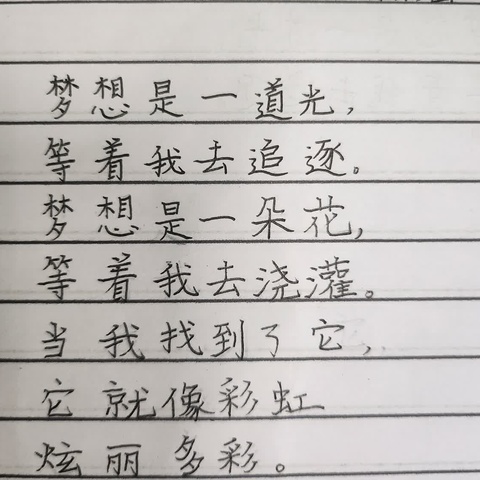 梦想是一道光，
等着我去追逐。
梦想是一朵花，
等着我去浇灌。
当我找到了它，
它就像彩虹
炫丽多彩。